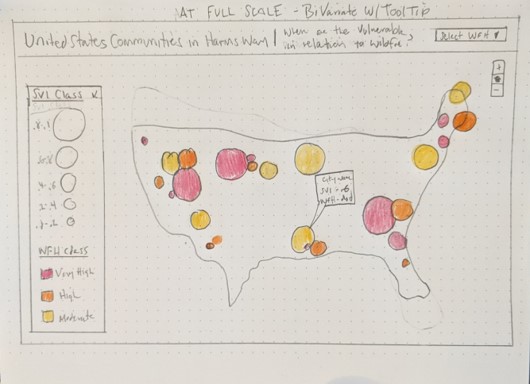 AT FULL SCALE - BiVariate W/ToolTip
United States Communities in Harms Way |
When are the Vulnerable,
in relation to wildfire?
Select WFH
+
-
SVI Class
.8-1
.6-.8
.4-.6
.2-.4
City Name
SVI = .6
WFH Class
Very High
High
Moderate